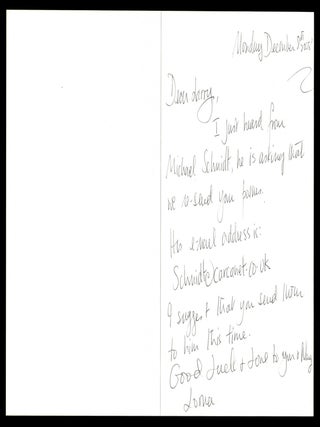 Monday December 5th
Dear Larry,
I just heard from
Michael Schmidt, he is asking that
we re-send your poems.
His e-mail address is:
Schmidt@carcanet.co.uk
I suggest that you send them
to him this time.
Good Luck + Love to you +